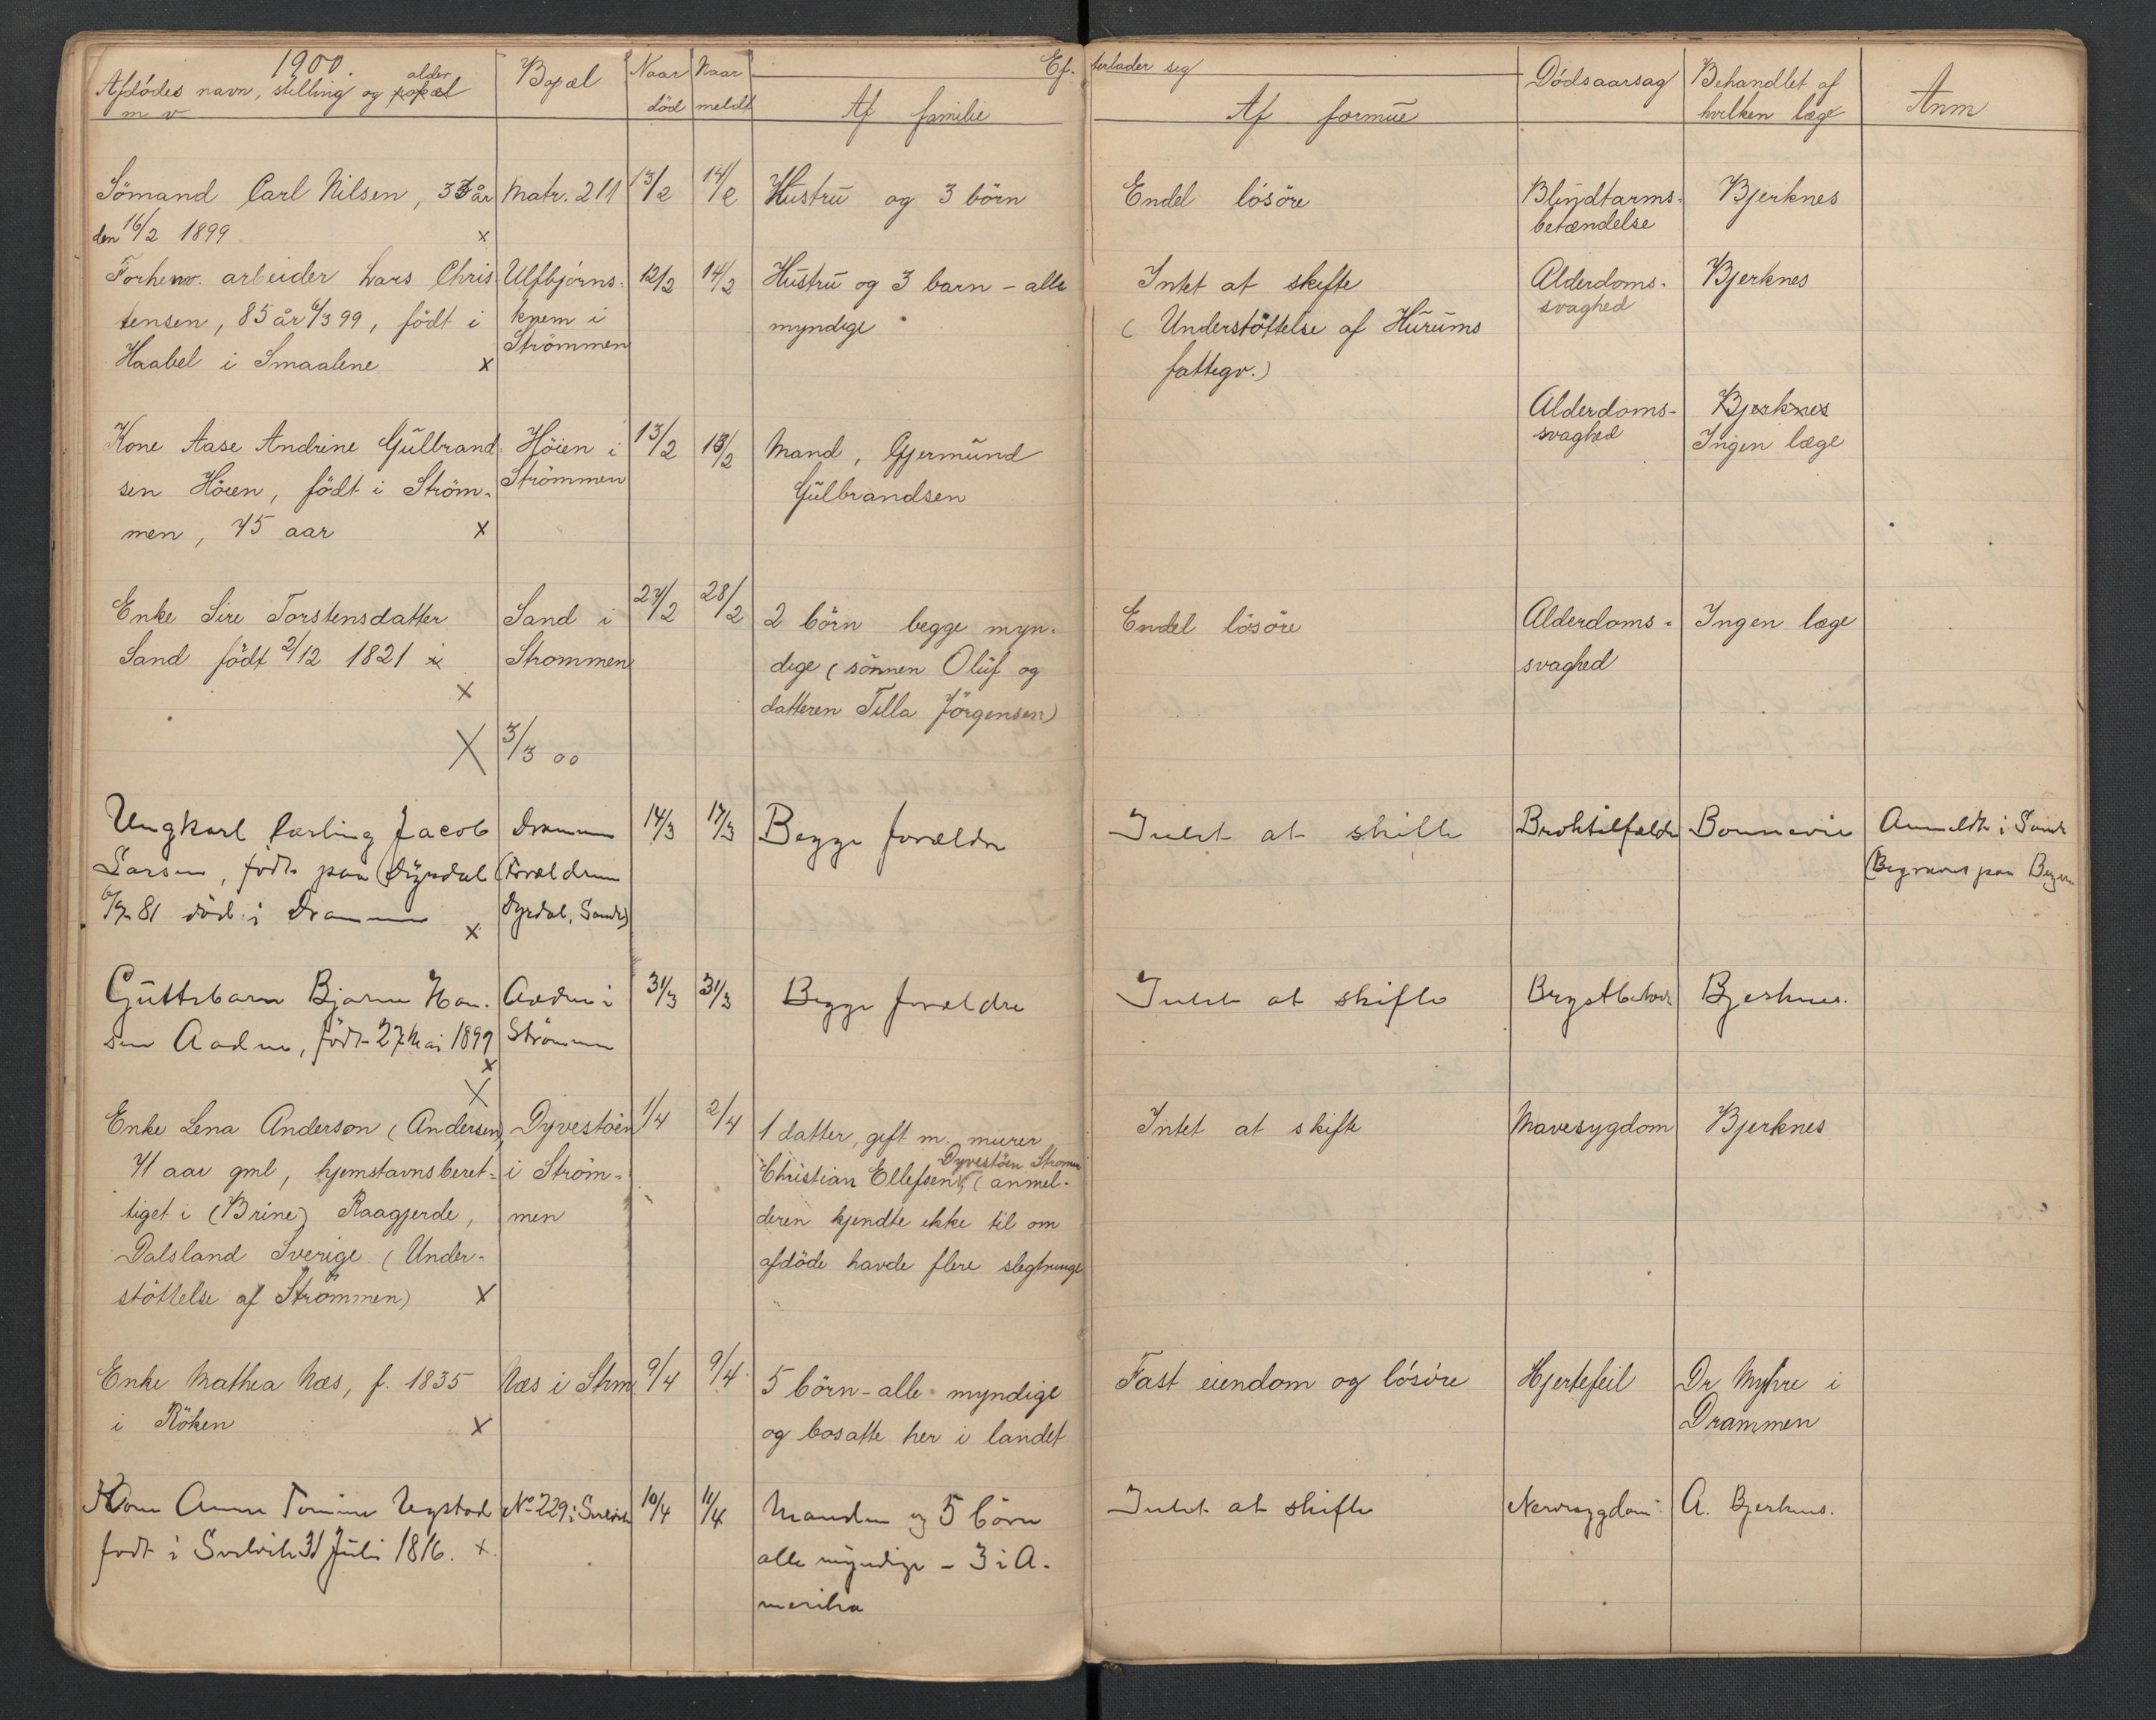 1900.
Afdödes navn, stilling og alder
m v
Bopæl
Naar död
Naar meldt
Efterlader sig
Af familie
Af formue
Dödsaarsag
Behandlet af hvilken læge
Anm
Sömand Carl Nilsen, 33 år Matr. 211 13/2 14/2 Hustru og 3 börn Endel lösöre Blindtarms- Bjerknes
den 16/2 1899 x betændelse
Forhenv. arbeider Lars Chris- Ulfbjörns- 12/2 14/2 Hustru og 3 barn - alle Intet at skifte Alderdoms- Bjerknes
tensen, 85 år 6/3 99, födt i knem i myndige ( Understöttelse af Hurums svaghed
Haabel i Smaalene x Strömmen fattigv.)
Kone Aase Andrine Gulbrand- Höien i 13/2 Mand, Gjermund Alderdoms- Bjerknes
sen Höien, födt i Ström- Strömmen Gulbrandsen svaghed Ingen læge
men, 75 aar x
Enke Sire Torstensdatter Sand i 27/2 28/2 2 börn begge myn- Endel lösöre Alderdoms- Ingen læge
Sand födt 2/12 1821 i Strommen dige (sönnen Oluf og svaghed
x datteren Tilla Jörgensen)
X 3/3 00
Ungkarl Carling Jacob Drammen 14/3 17/3 Begge forældre Intet at skifte Broktilfælde Bonnevie Anmeldt i Sande
Larsen, födt paa Dyrdal (Forældrene (Begraves paa
81 död i Drammen x Dyrdal, Sande)
Guttebarn Bjarne Han- Aadne i 31/3 31/3 Begge forældre Intet at skifte Bjerknes.
sen Aadne, födt 27 Mai 1899 Strömmen
x
X
Enke Lena Anderson (Andersen), Dyvestöen 1/4 2/4 1 datter, gift m. murer Intet at skifte Mavesygdom Bjerknes
71 aar gml, hjemstavnsberet- i Ström- Christian Ellefsen, Dyvestöen Strömm (anmel-
tiget i (Brine) Raagjerde, men deren kjendte ikke til om
Dalsland Sverige (Under- afdöde havde flere slegtninge
stöttelse af Strömmen) x
Enke Mathea Næs, f. 1835 Næs i Strm 9/4 9/4 5 börn - alle myndige Fast eiendom og lösöre Hjertefeil Dr Myhre i
i Röken x og bosatte her i landet Drammen
Kone Anne Tomine Ugstad No 229 i Svelvik 10/4 11/4 Manden og 5 börn Intet at skifte Nervesygdom A. Bjerknes.
födt i Svelvik 31 Juli 1816. x alle myndige - 3 i A-
merika